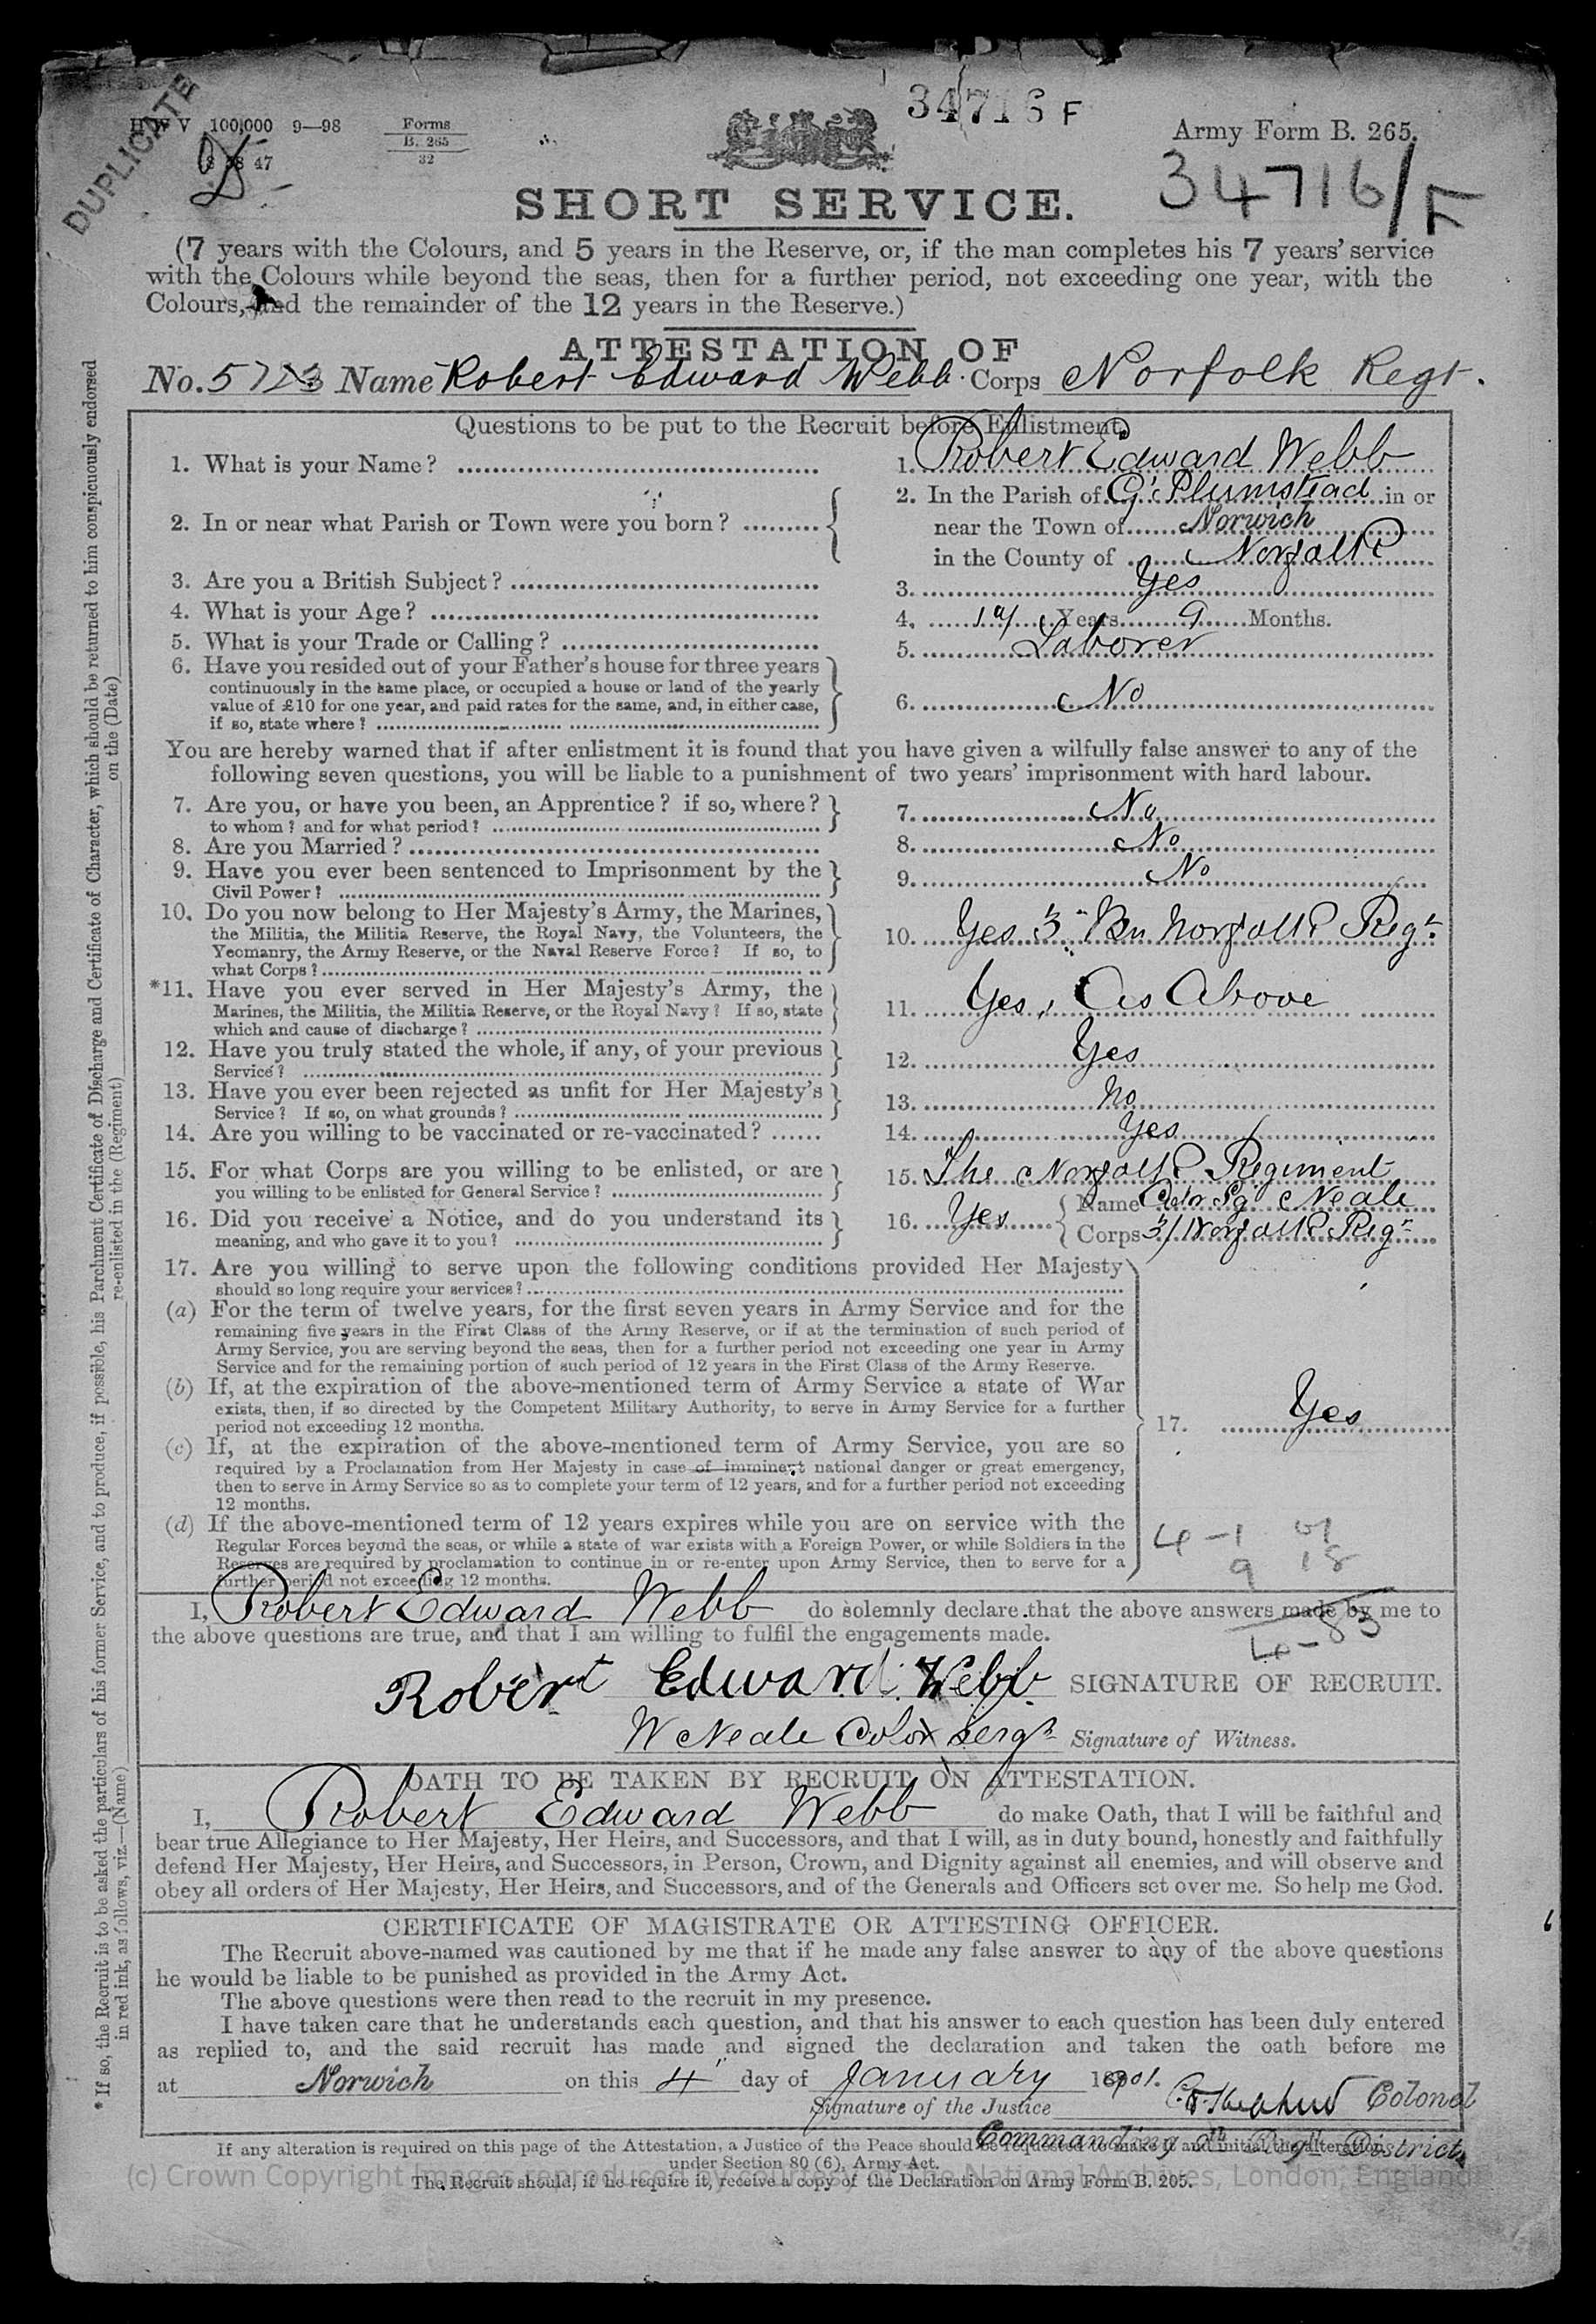 DUPLICATE
H W V 100,000 9—98 Forms B. 265 32
47
34716 F
Army Form B. 265.
34716/F
SHORT SERVICE.
(7 years with the Colours, and 5 years in the Reserve, or, if the man completes his 7 years' service
with the Colours while beyond the seas, then for a further period, not exceeding one year, with the
Colours, and the remainder of the 12 years in the Reserve.)
ATTESTATION OF
No. 5723 Name Robert Edward Webb. Corps Norfolk Regt.
Questions to be put to the Recruit before Enlistment.
1. What is your Name? 1. Robert Edward Webb
2. In or near what Parish or Town were you born? 2. In the Parish of Gt Plumstead in or
near the Town of Norwich
in the County of Norfolk
3. Are you a British Subject? 3. Yes
4. What is your Age? 4. Years 9 Months.
5. What is your Trade or Calling? 5. Laborer
6. Have you resided out of your Father's house for three years
continuously in the same place, or occupied a house or land of the yearly
value of £10 for one year, and paid rates for the same, and, in either case,
if so, state where? 6. No
You are hereby warned that if after enlistment it is found that you have given a wilfully false answer to any of the
following seven questions, you will be liable to a punishment of two years' imprisonment with hard labour.
7. Are you, or have you been, an Apprentice? if so, where?
to whom? and for what period? 7. No
8. Are you Married? 8. No
9. Have you ever been sentenced to Imprisonment by the
Civil Power? 9. No
10. Do you now belong to Her Majesty's Army, the Marines,
the Militia, the Militia Reserve, the Royal Navy, the Volunteers, the
Yeomanry, the Army Reserve, or the Naval Reserve Force? If so, to
what Corps? 10. Yes 3rd Bn Norfolk Regt
*11. Have you ever served in Her Majesty's Army, the
Marines, the Militia, the Militia Reserve, or the Royal Navy? If so, state
which and cause of discharge? 11. Yes, As Above
12. Have you truly stated the whole, if any, of your previous
Service? 12. Yes
13. Have you ever been rejected as unfit for Her Majesty's
Service? If so, on what grounds? 13. No
14. Are you willing to be vaccinated or re-vaccinated? 14. Yes
15. For what Corps are you willing to be enlisted, or are
you willing to be enlisted for General Service? 15. The Norfolk Regiment
16. Did you receive a Notice, and do you understand its
meaning, and who gave it to you? 16. Yes Name Color Sg Neale
Corps 3/ Norfolk Regt
17. Are you willing to serve upon the following conditions provided Her Majesty
should so long require your services?
(a) For the term of twelve years, for the first seven years in Army Service and for the
remaining five years in the First Class of the Army Reserve, or if at the termination of such period of
Army Service, you are serving beyond the seas, then for a further period not exceeding one year in Army
Service and for the remaining portion of such period of 12 years in the First Class of the Army Reserve.
(b) If, at the expiration of the above-mentioned term of Army Service a state of War
exists, then, if so directed by the Competent Military Authority, to serve in Army Service for a further
period not exceeding 12 months.
17. Yes
(c) If, at the expiration of the above-mentioned term of Army Service, you are so
required by a Proclamation from Her Majesty in case of imminent national danger or great emergency,
then to serve in Army Service so as to complete your term of 12 years, and for a further period not exceeding
12 months.
(d) If the above-mentioned term of 12 years expires while you are on service with the
Regular Forces beyond the seas, or while a state of war exists with a Foreign Power, or while Soldiers in the
Reserves are required by proclamation to continue in or re-enter upon Army Service, then to serve for a
further period not exceeding 12 months.
4 - 1 01
9 18
4 - 83
I, Robert Edward Webb do solemnly declare that the above answers made by me to
the above questions are true, and that I am willing to fulfil the engagements made.
Robert Edward Webb SIGNATURE OF RECRUIT.
W Neale Color Sergt Signature of Witness.
OATH TO BE TAKEN BY RECRUIT ON ATTESTATION.
I, Robert Edward Webb do make Oath, that I will be faithful and
bear true Allegiance to Her Majesty, Her Heirs, and Successors, and that I will, as in duty bound, honestly and faithfully
defend Her Majesty, Her Heirs, and Successors, in Person, Crown, and Dignity against all enemies, and will observe and
obey all orders of Her Majesty, Her Heirs, and Successors, and of the Generals and Officers set over me. So help me God.
CERTIFICATE OF MAGISTRATE OR ATTESTING OFFICER.
The Recruit above-named was cautioned by me that if he made any false answer to any of the above questions
he would be liable to be punished as provided in the Army Act.
The above questions were then read to the recruit in my presence.
I have taken care that he understands each question, and that his answer to each question has been duly entered
as replied to, and the said recruit has made and signed the declaration and taken the oath before me
at Norwich on this 4" day of January 1901.
Signature of the Justice Colonel
Commanding 9th Regtl District
If any alteration is required on this page of the Attestation, a Justice of the Peace should be requested to make it and initial the alteration
under Section 80 (6), Army Act.
The Recruit should, if he require it, receive a copy of the Declaration on Army Form B. 205.
(c) Crown Copyright Images reproduced by courtesy of The National Archives, London, England
* If so, the Recruit is to be asked the particulars of his former Service, and to produce, if possible, his Parchment Certificate of Discharge and Certificate of Character, which should be returned to him conspicuously endorsed
in red ink, as follows, viz.—(Name) re-enlisted in the (Regiment) on the (Date)